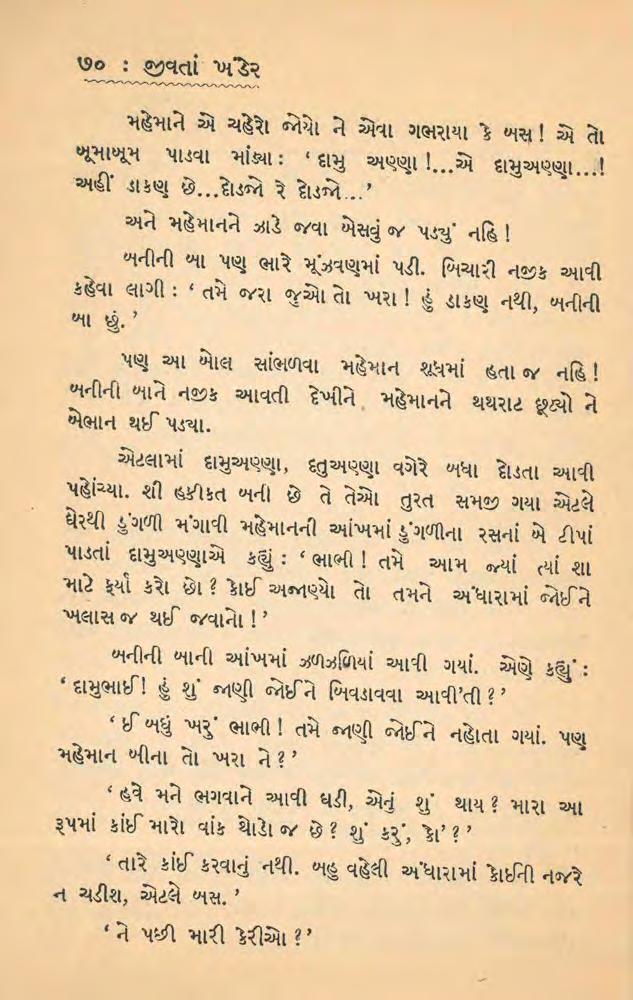 ૭૦ : જીવતાં ખંડેર
મહેમાને એ ચહેરો જોયો ને એવા ગભરાયા કે બસ! એ તો
બૂમાબૂમ પાડવા માંડ્યા : ‘ દામુ અણ્ણા !...એ દામુઅણ્ણા...!
અહીં ડાકણ છે...દોડજો રે દોડજો...’
અને મહેમાનને ઝાડે જવા બેસવું જ પડ્યું નહિ !
બનીની બા પણ ભારે મૂંઝવણમાં પડી. બિચારી નજીક આવી
કહેવા લાગી : ‘ તમે જરા જુઓ તો ખરા ! હું ડાકણ નથી, બનીની
બા છું. ’
પણ આ બોલ સાંભળવા મહેમાન શુધમાં હતા જ નહિ !
બનીની બાને નજીક આવતી દેખીને મહેમાનને થથરાટ છૂટ્યો ને
બેભાન થઈ પડ્યા.
એટલામાં દામુઅણ્ણા, દતુઅણ્ણા વગેરે બધા દોડતા આવી
પહોંચ્યા. શી હકીકત બની છે તે તેઓ તુરત સમજી ગયા એટલે
ઘેરથી ડુંગળી મંગાવી મહેમાનની આંખમાં ડુંગળીના રસનાં બે ટીપાં
પાડતાં દામુઅણ્ણાએ કહ્યું : ‘ ભાભી ! તમે આમ જ્યાં ત્યાં શા
માટે ફર્યા કરો છો ? કોઈ અજાણ્યો તો તમને અંધારામાં જોઈને
ખલાસ જ થઈ જવાનો ! ’
બનીની બાની આંખમાં ઝળઝળિયાં આવી ગયાં. એણે કહ્યું :
‘ દામુભાઈ! હું શું જાણી જોઈને બિવડાવવા આવી'તી ? ’
‘ ઈ બધું ખરું ભાભી ! તમે જાણી જોઈને નહોતા ગયાં. પણ
મહેમાન બીના તો ખરા ને ? ’
‘ હવે મને ભગવાને આવી ઘડી, એનું શું થાય ? મારા આ
રૂપમાં કાંઈ મારો વાંક થોડો જ છે ? શું કરું, કો' ? ’
‘ તારે કાંઈ કરવાનું નથી. બહુ વહેલી અંધારામાં કોઈની નજરે
ન ચડીશ, એટલે બસ. ’
‘ ને પછી મારી કેરીઓ ? ’